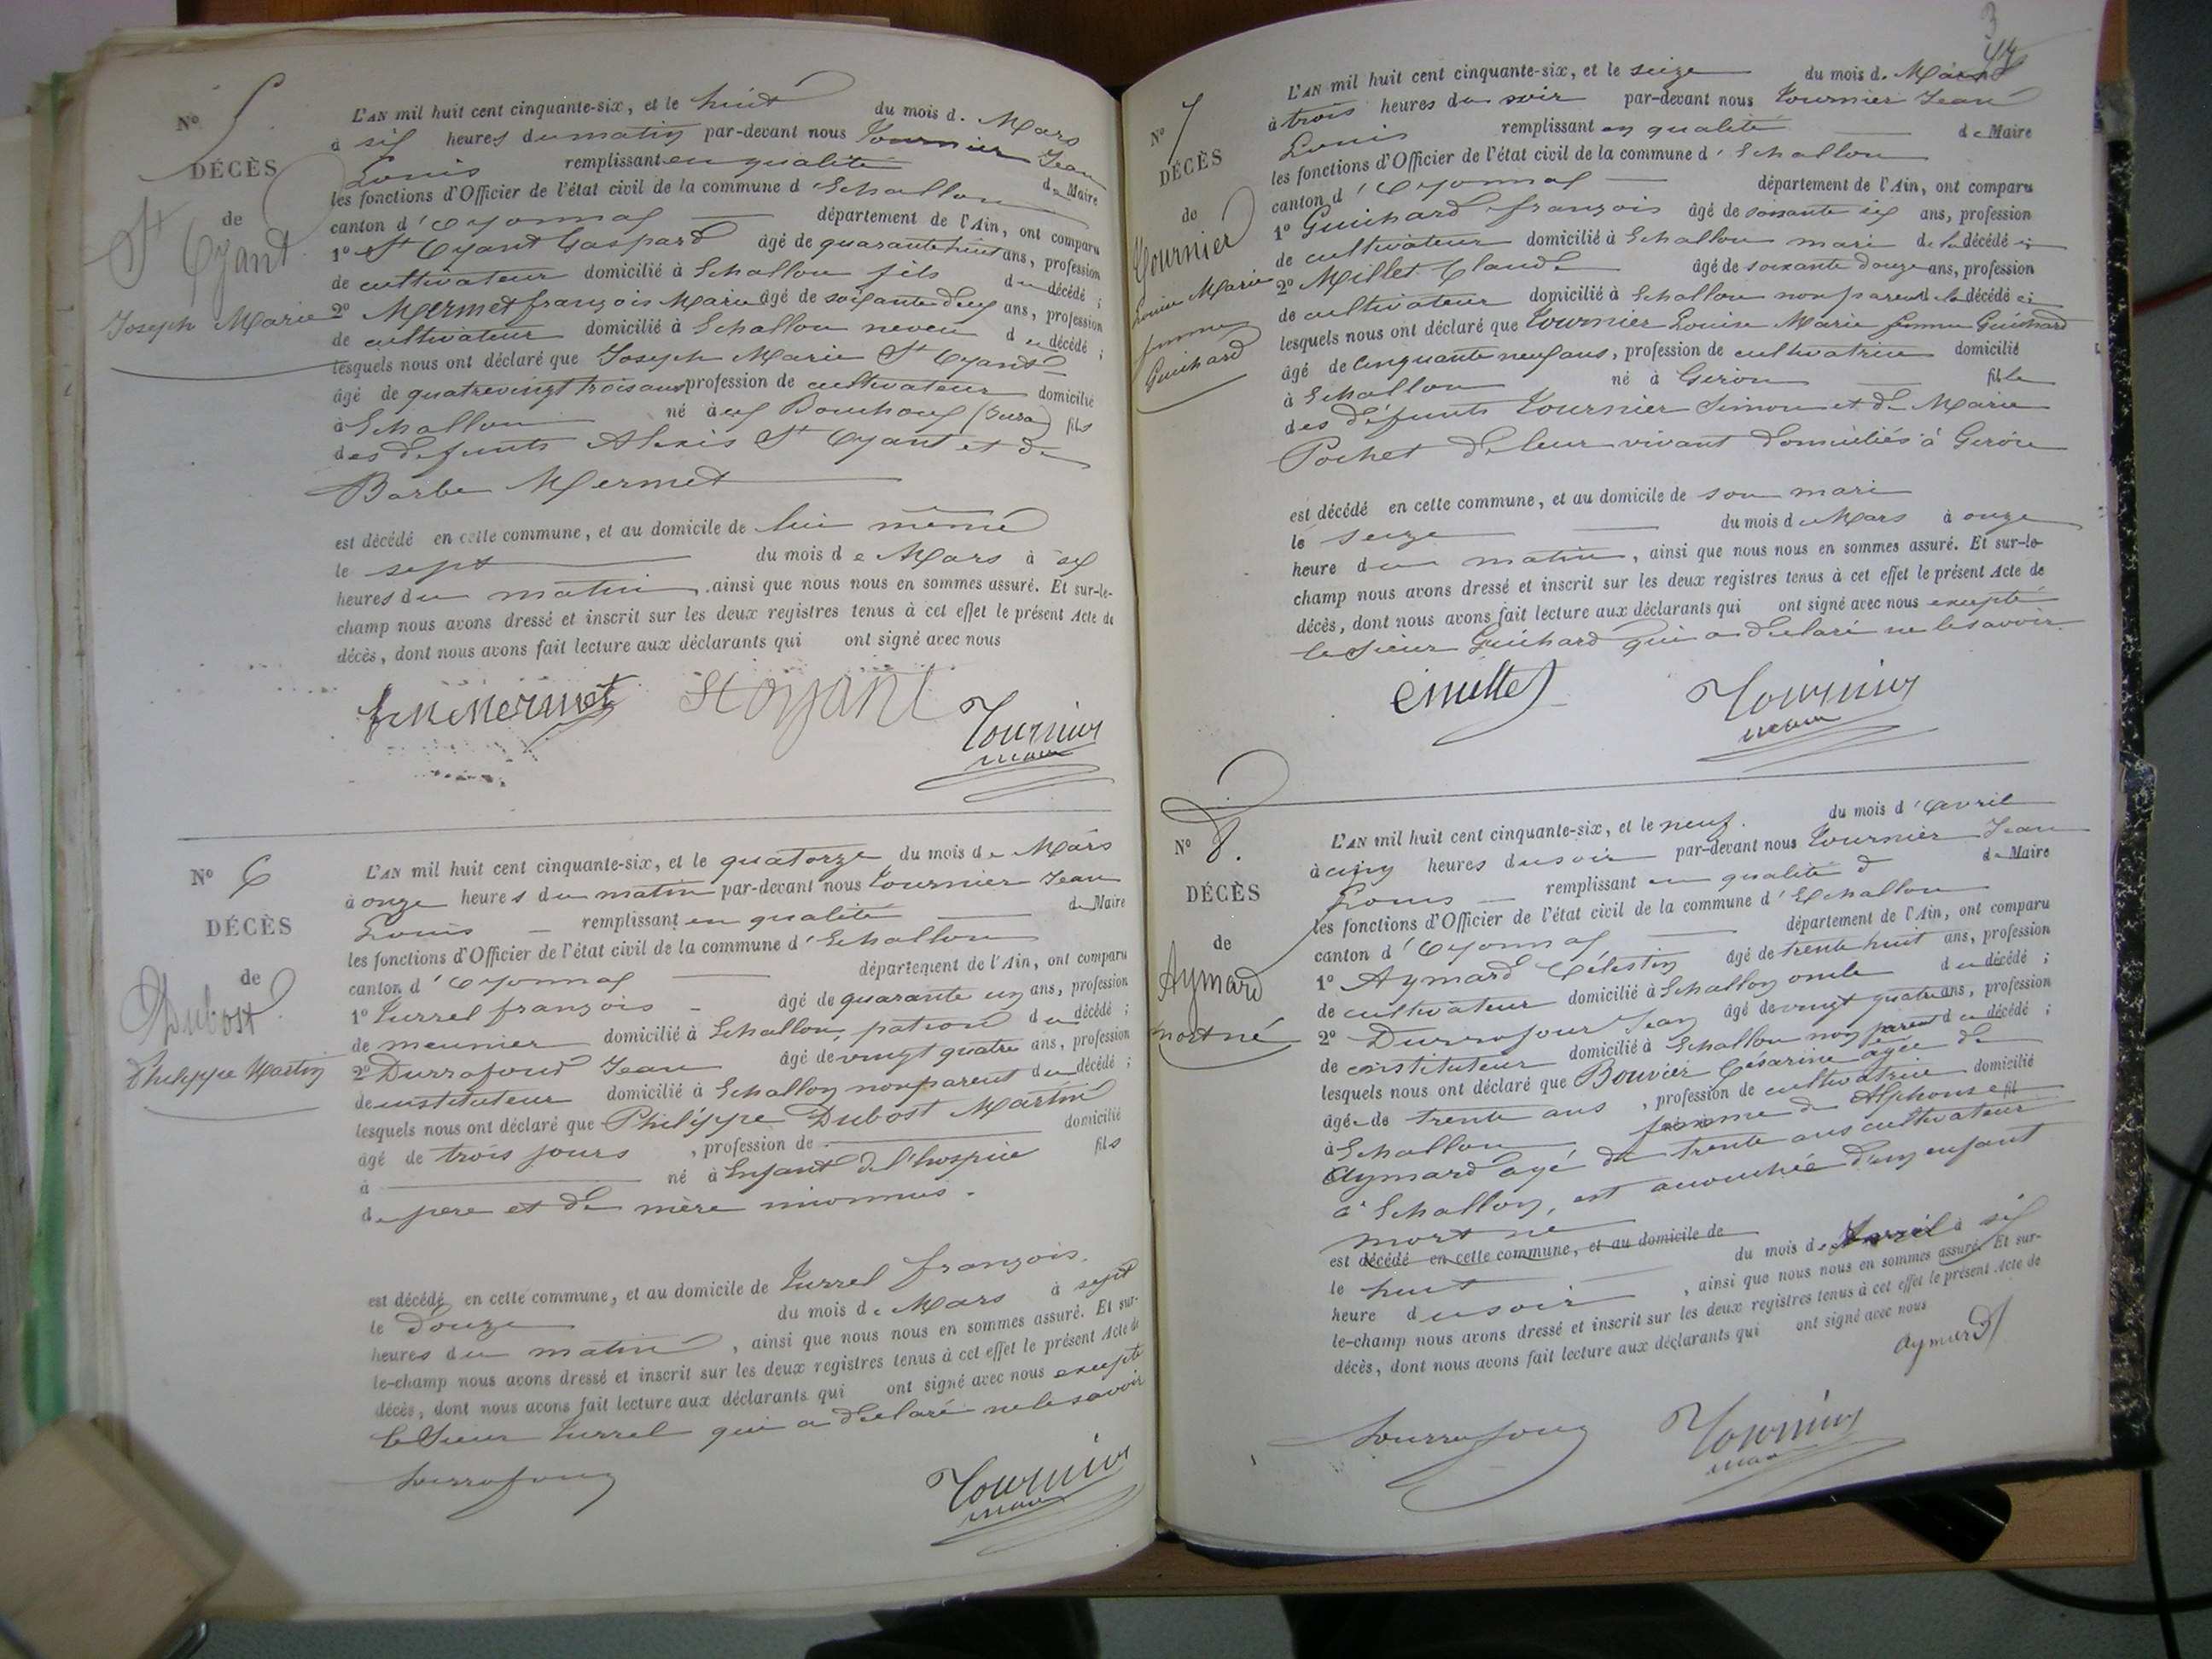 N° 5
DÉCÈS
de
St Oyant
Joseph Marie
L'AN mil huit cent cinquante-six, et le huit du mois d. Mars
à six heures du matin par-devant nous Tournier Jean
Louis remplissant en qualité de Maire
les fonctions d'Officier de l'état civil de la commune d'Echallon
canton d'Oyonnax département de l'Ain, ont comparu
1° St Oyant Gaspard âgé de quarante huit ans, profession
de cultivateur domicilié à Echallon fils du décédé ;
2° Mermet françois Marie âgé de soixante deux ans, profession
de cultivateur domicilié à Echallon neveu du décédé ;
lesquels nous ont déclaré que Joseph Marie St Oyant
âgé de quatrevingt trois ans profession de cultivateur domicilié
à Echallon né à aux Bouchoux (Jura) fils
des defunts Alexis St Oyant et de
Barbe Mermet
est décédé en cette commune, et au domicile de lui même
le sept du mois de Mars à six
heures du matin, ainsi que nous nous en sommes assuré. Et sur-le-
champ nous avons dressé et inscrit sur les deux registres tenus à cet effet le présent Acte de
décès, dont nous avons fait lecture aux déclarants qui ont signé avec nous
f.M. Mermet St Oyant Tournier
maire
N° 6
DÉCÈS
de
Dubost
Philippe Martin
L'AN mil huit cent cinquante-six, et le quatorze du mois de Mars
à onze heures du matin par-devant nous Tournier Jean
Louis remplissant en qualité de Maire
les fonctions d'Officier de l'état civil de la commune d'Echallon
canton d'Oyonnax département de l'Ain, ont comparu
1° Turrel françois âgé de quarante un ans, profession
de meunier domicilié à Echallon, patron du décédé ;
2° Durrafour Jean âgé de vingt quatre ans, profession
de instituteur domicilié à Echallon non parent du décédé ;
lesquels nous ont déclaré que Philippe Dubost Martin
âgé de trois jours , profession de domicilié
à né à Enfant de l'hospice fils
de pere et de mère inconnus.
est décédé en cette commune, et au domicile de Turrel françois.
le douze du mois de Mars à sept
heures du matin , ainsi que nous nous en sommes assuré. Et sur-
le-champ nous avons dressé et inscrit sur les deux registres tenus à cet effet le présent Acte de
décès, dont nous avons fait lecture aux déclarants qui ont signé avec nous excepté
le Sieur Turrel qui a déclaré ne le savoir
Durrafour Tournier
maire
3
N° 7
DÉCÈS
de
Tournier
Louise Marie
femme
Guichard
L'AN mil huit cent cinquante-six, et le seize du mois d. Mars
à trois heures du soir par-devant nous Tournier Jean
Louis remplissant en qualité de Maire
les fonctions d'Officier de l'état civil de la commune d'Echallon
canton d'Oyonnax département de l'Ain, ont comparu
1° Guichard françois âgé de soixante six ans, profession
de cultivateur domicilié à Echallon mari de la décédée ;
2° Millet Claude âgé de soixante douze ans, profession
de cultivateur domicilié à Echallon non parent de la décédée ;
lesquels nous ont déclaré que Tournier Louise Marie femme Guichard
âgé de cinquante neuf ans, profession de cultivatrice domicilié
à Echallon né à Giron fille
des défunts Tournier Simon et de Marie
Pochet de leur vivant domiciliés à Giron
est décédé en cette commune, et au domicile de son mari
le seize du mois de Mars à onze
heure du matin, ainsi que nous nous en sommes assuré. Et sur-le-
champ nous avons dressé et inscrit sur les deux registres tenus à cet effet le présent Acte de
décès, dont nous avons fait lecture aux déclarants qui ont signé avec nous excepté
le Sieur Guichard qui a déclaré ne le savoir.
C Millet Tournier
maire
N° 8.
DÉCÈS
de
Aymard
mort né
L'AN mil huit cent cinquante-six, et le neuf. du mois d'avril
à cinq heures du soir par-devant nous Tournier Jean
Louis remplissant en qualité d de Maire
les fonctions d'Officier de l'état civil de la commune d'Echallon
canton d'Oyonnax département de l'Ain, ont comparu
1° Aymard Célestin âgé de trente huit ans, profession
de cultivateur domicilié à Echallon oncle du décédé ;
2° Durrafour Jean âgé de vingt quatre ans, profession
de instituteur domicilié à Echallon non parent du décédé ;
lesquels nous ont déclaré que Bouvier Césarine agée de
âgée de trente ans , profession de cultivatrice domicilié
à Echallon femme de Alphonse fil
Aymard agé de trente ans cultivateur
à Echallon, est accouchée d'un enfant
mort né
est décédé en cette commune, et au domicile de
le huit du mois de avril à six
heure du soir , ainsi que nous nous en sommes assuré. Et sur-
le-champ nous avons dressé et inscrit sur les deux registres tenus à cet effet le présent Acte de
décès, dont nous avons fait lecture aux déclarants qui ont signé avec nous
Aymard
Durrafour Tournier
maire